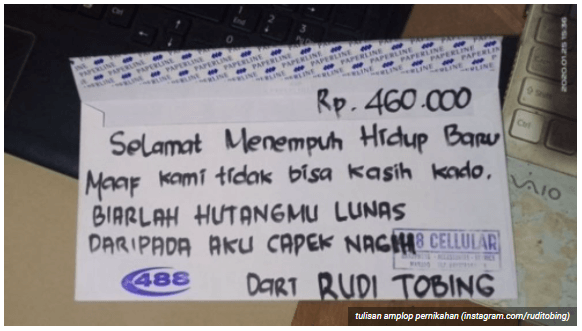 PAPERLINE PAPERLINE PAPERLINE PAPERLINE
Rp. 460.000
Selamat Menempuh Hidup Baru
Maaf kami tidak bisa kasih kado.
BIARLAH HUTANGMU LUNAS
DARIPADA AKU CAPEK NAGIH
8 CELLULAR
488
DARI RUDI TOBING
2020.01.25 15:36
Ctrl
Shift
Ctrl
VAIO
tulisan amplop pernikahan (instagram.com/ruditobing)